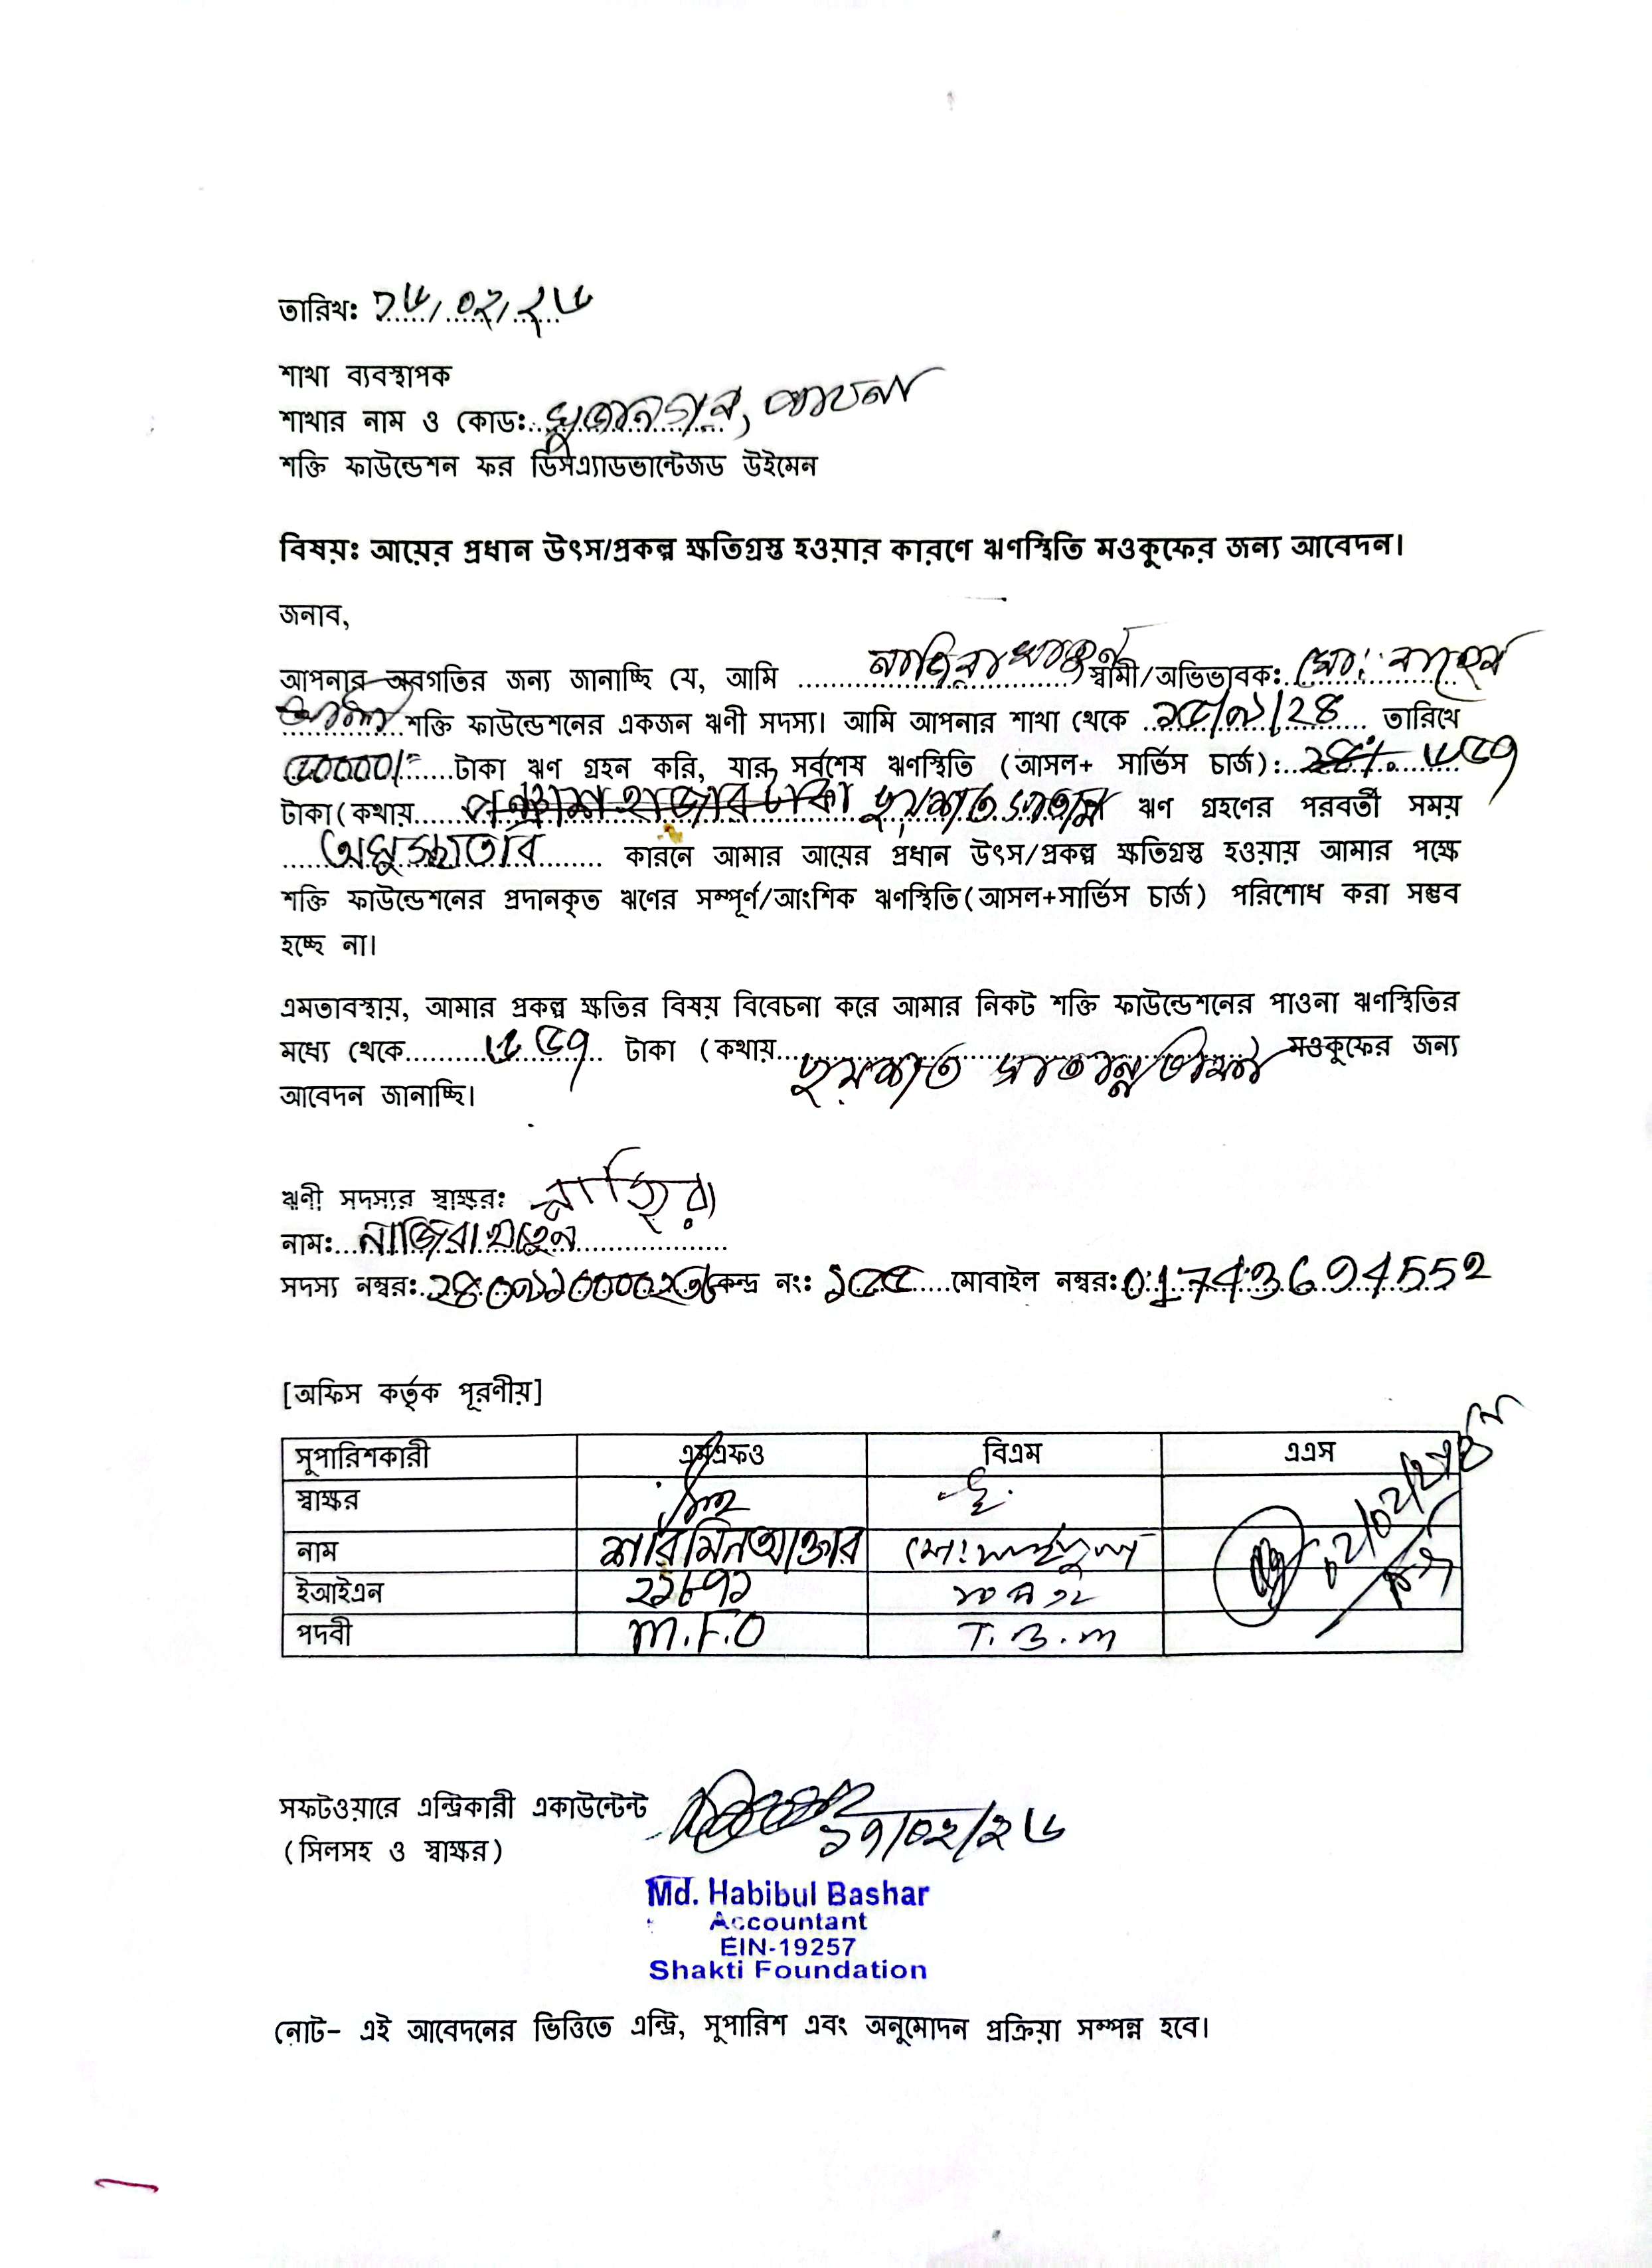 তারিখঃ ১৬/০২/২৬
শাখা ব্যবস্থাপক
শাখার নাম ও কোডঃ সুজানগর, পাবনা
শক্তি ফাউন্ডেশন ফর ডিসএ্যাডভান্টেজড উইমেন
বিষয়ঃ আয়ের প্রধান উৎস/প্রকল্প ক্ষতিগ্রস্ত হওয়ার কারণে ঋণস্থিতি মওকুফের জন্য আবেদন।
জনাব,
আপনার অবগতির জন্য জানাচ্ছি যে, আমি নাজিরা খাতুন স্বামী/অভিভাবকঃ মোঃ
শক্তি ফাউন্ডেশনের একজন ঋণী সদস্য। আমি আপনার শাখা থেকে ১৫/৭/২৪ তারিখে
৫০০০০/= টাকা ঋণ গ্রহন করি, যার সর্বশেষ ঋণস্থিতি (আসল+ সার্ভিস চার্জ): ৬৫৭
টাকা(কথায় পঞ্চাশ হাজার টাকা ছয়শত সাতান্ন ঋণ গ্রহণের পরবর্তী সময়
অসুস্থতার কারনে আমার আয়ের প্রধান উৎস/প্রকল্প ক্ষতিগ্রস্ত হওয়ায় আমার পক্ষে
শক্তি ফাউন্ডেশনের প্রদানকৃত ঋণের সম্পূর্ণ/আংশিক ঋণস্থিতি(আসল+সার্ভিস চার্জ) পরিশোধ করা সম্ভব
হচ্ছে না।
এমতাবস্থায়, আমার প্রকল্প ক্ষতির বিষয় বিবেচনা করে আমার নিকট শক্তি ফাউন্ডেশনের পাওনা ঋণস্থিতির
মধ্যে থেকে ৬৫৭ টাকা (কথায় ছয়শত সাতান্ন টাকা) মওকুফের জন্য
আবেদন জানাচ্ছি।
ঋণী সদস্যর স্বাক্ষর: নাজিরা
নাম: নাজিরা খাতুন
সদস্য নম্বর: কেন্দ্র নং: ১৫৫ মোবাইল নম্বর: 01743694552
[অফিস কর্তৃক পূরণীয়]
সুপারিশকারী এমএফও বিএম এএস
স্বাক্ষর
নাম শারমিন আক্তার মোঃ
ইআইএন ২১৮৭১
পদবী M.F.O T.B.M
সফটওয়ারে এন্ট্রিকারী একাউন্টেন্ট ১৭/০২/২৬
(সিলসহ ও স্বাক্ষর)
Md. Habibul Bashar
Accountant
EIN-19257
Shakti Foundation
নোট- এই আবেদনের ভিত্তিতে এন্ট্রি, সুপারিশ এবং অনুমোদন প্রক্রিয়া সম্পন্ন হবে।